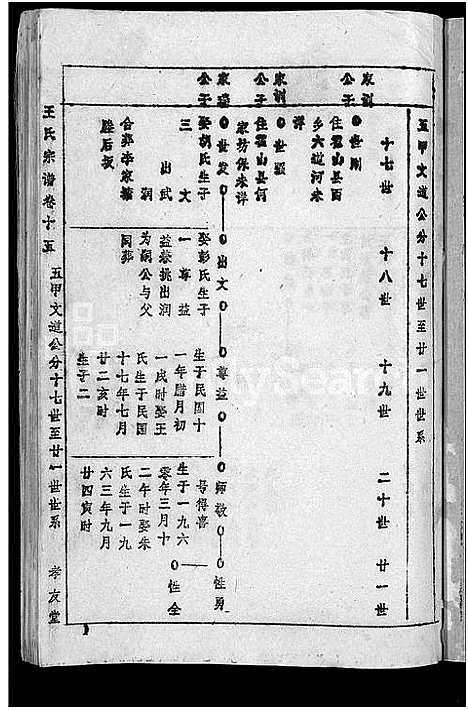 五甲文道公分十七世至廿一世世系
十七世 十八世 十九世 二十世 廿一世
家訓公子
世剛
住霍山县西
乡大道河未
详
家訓公子
世毅
住霍山县何
家坊保未详
公子
世发 出文 尊益 师毅 性勇
娶胡氏生子
三 文
出武
润
合葬李家塘
塍后坂
娶彭氏生子
一尊益
益叁挑出润
为嗣公与父
同葬
生于民国十
一年腊月初
一戌时娶王
氏生于民国
十七年七月
廿二亥时
生子二
号得喜
生于一九六
零年三月十
二午时娶朱
氏生于一九
六三年九月
廿四寅时
性全
王氏宗谱卷十五
五甲文道公分十七世至廿一世世系
孝友堂